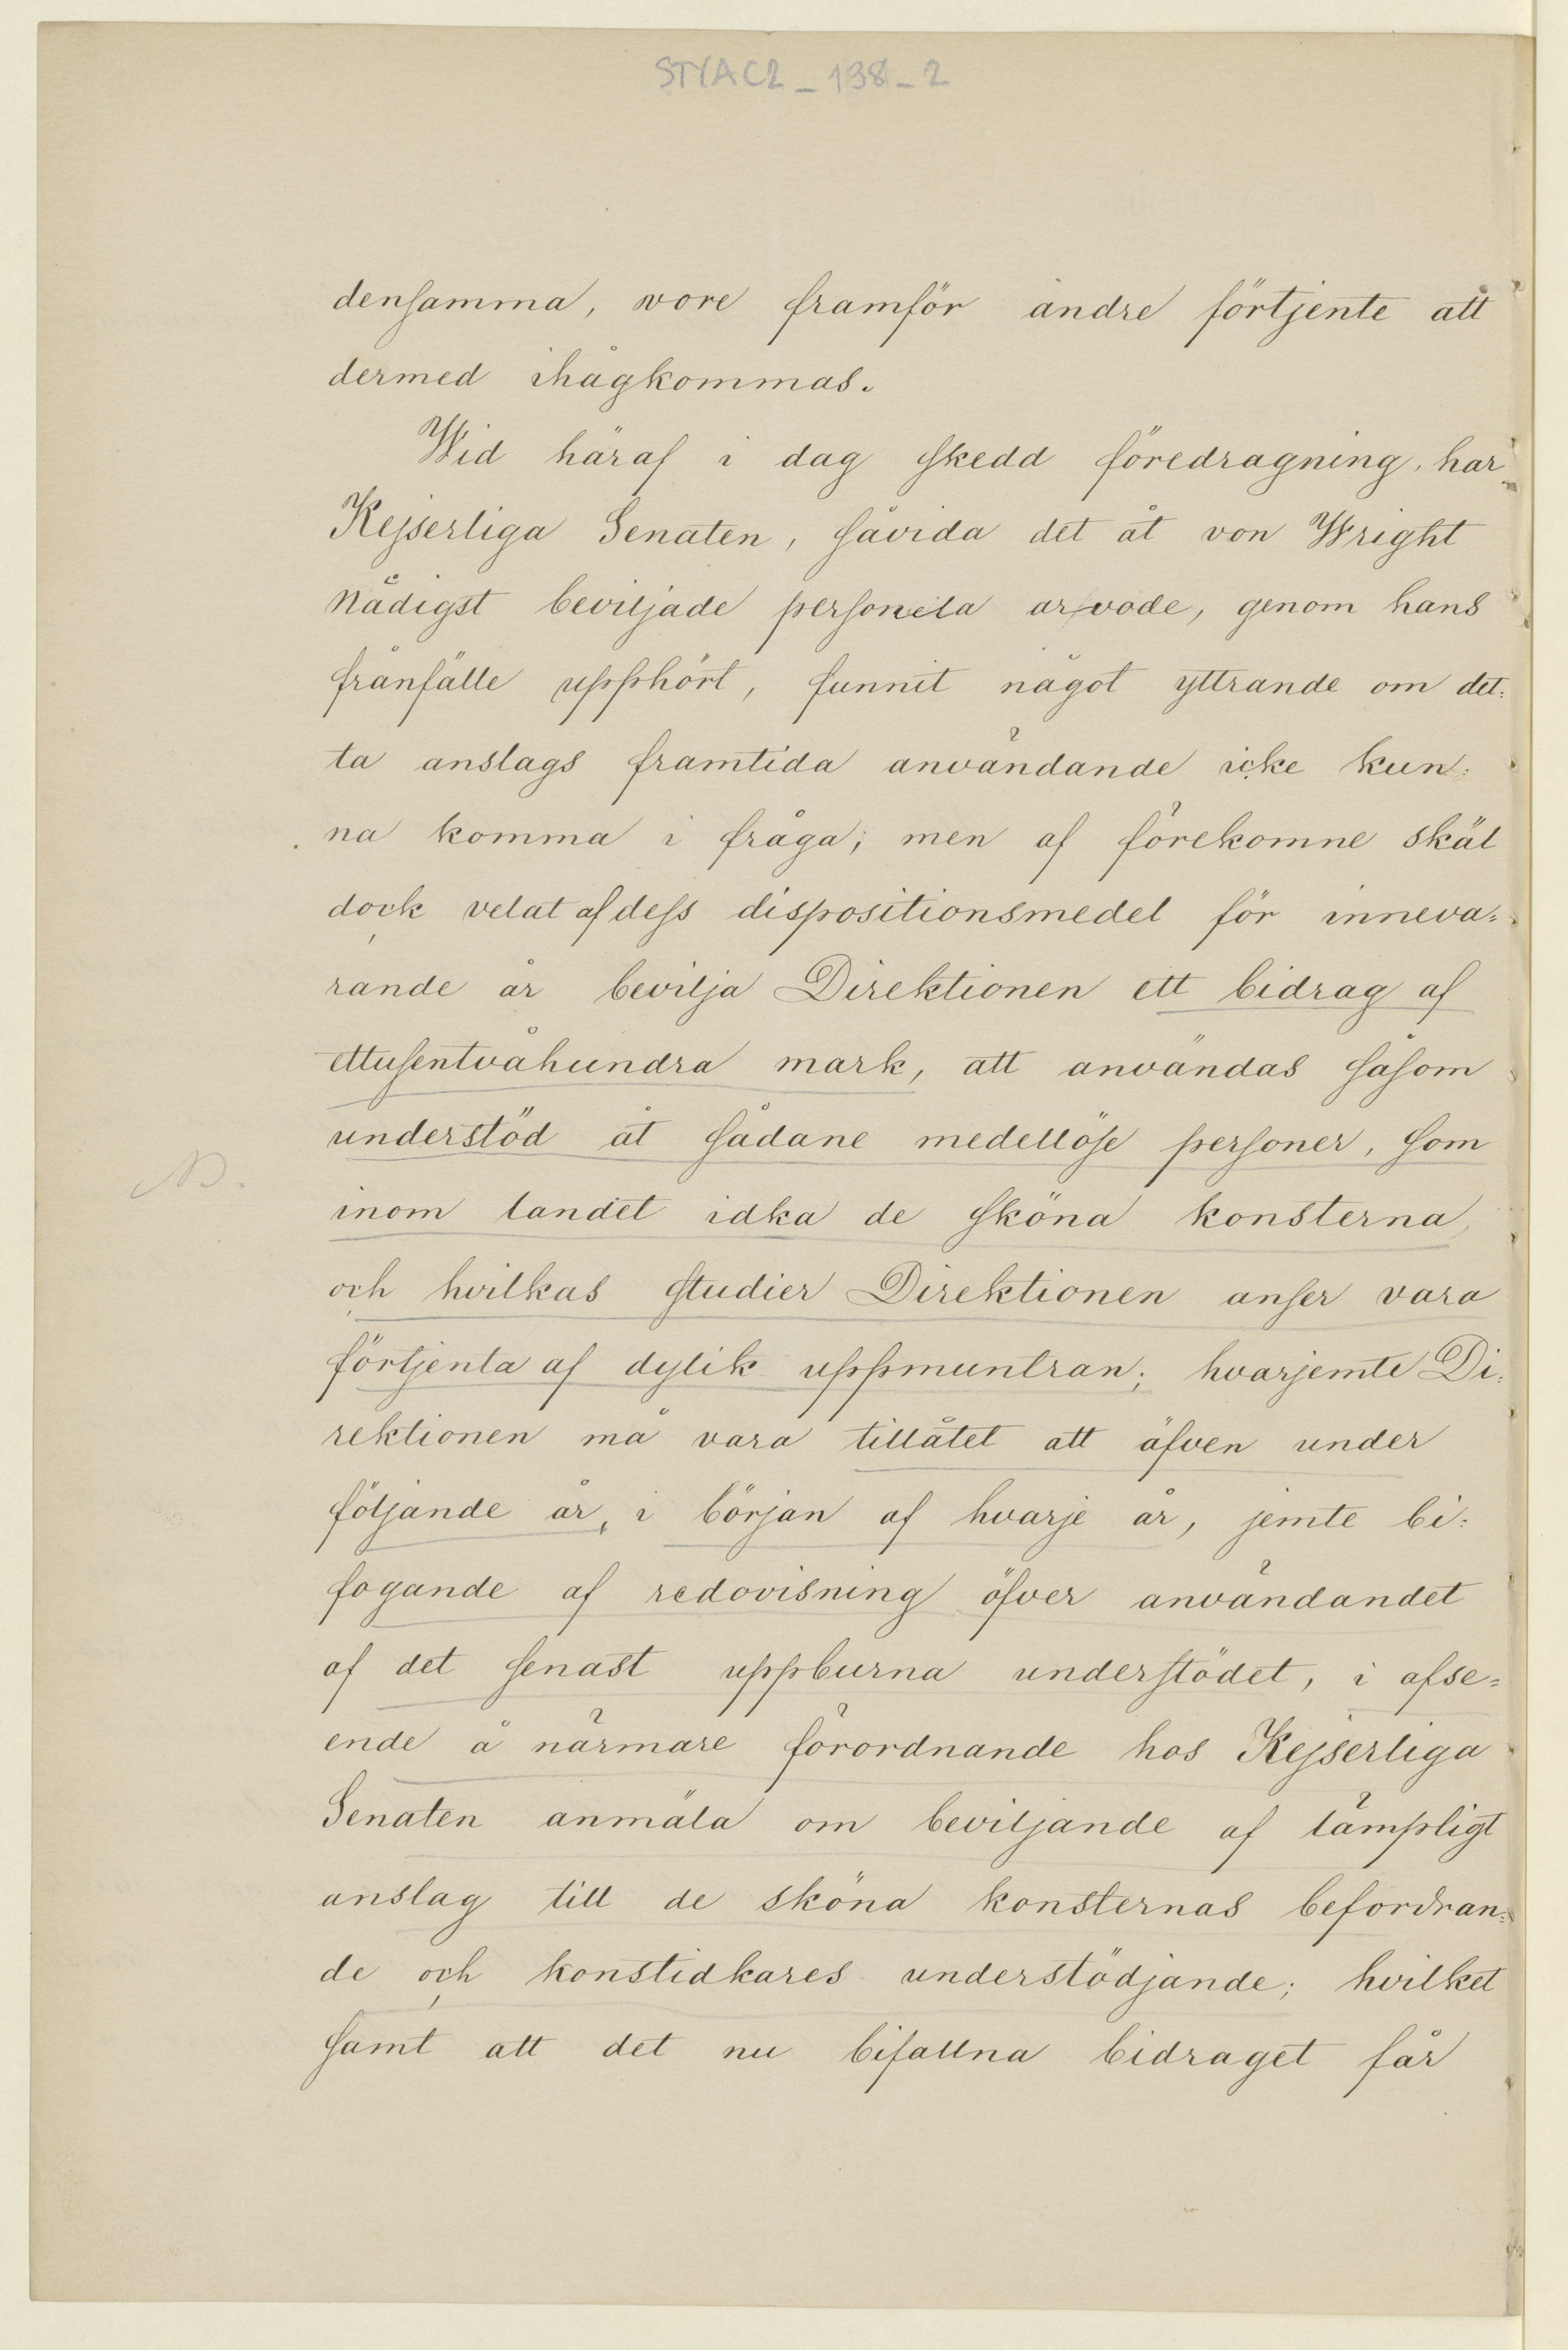 STYAC2_138_2
densamma, vore framför andre förtjente att
dermed ihågkommas.
Wid häraf i dag skedd föredragning, har
Kejserliga Senaten, såvida det åt von Wright
Nådigst beviljade personela arvode, genom hans
frånfälle upphört, funnit något yttrande om det:
ta anslags framtida användande icke kun:
na komma i fråga; men af förekomne skäl
dock velat af dess dispositionsmedel för inneva:
rande år bevilja Direktionen ett bidrag af
ettusentvåhundra mark, att användas såsom
understöd åt sådane medellöse personer, som
NB.
inom landet idka de sköna konsterna,
och hvilkas studier Direktionen anser vara
förtjenta af dylik uppmuntran; hvarjemte Di:
rektionen må vara tillåtet att äfven under
följande år, i början af hvarje år, jemte bi:
fogande af redovisning öfver användandet
af det senast uppburna understödet, i afse:
ende å närmare förordnande hos Kejserliga
Senaten anmäla om beviljande af lämpligt
anslag till de sköna konsternas befordran:
de och konstidkares understödjande; hvilket
samt att det nu bifallna bidraget får